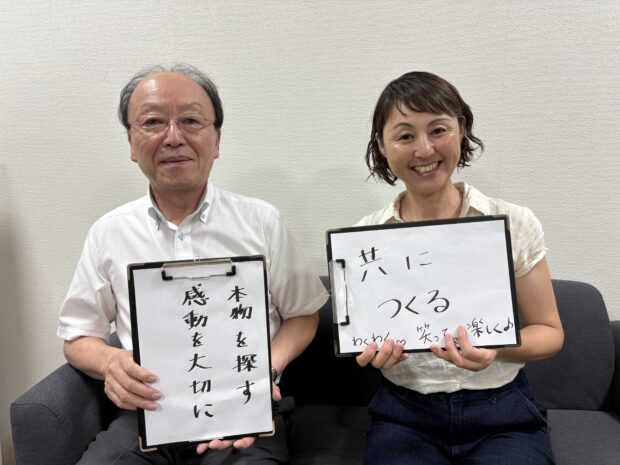 本物を探す
感動を大切に
共に
つくる
わくわく♡ 笑って 楽しく♪